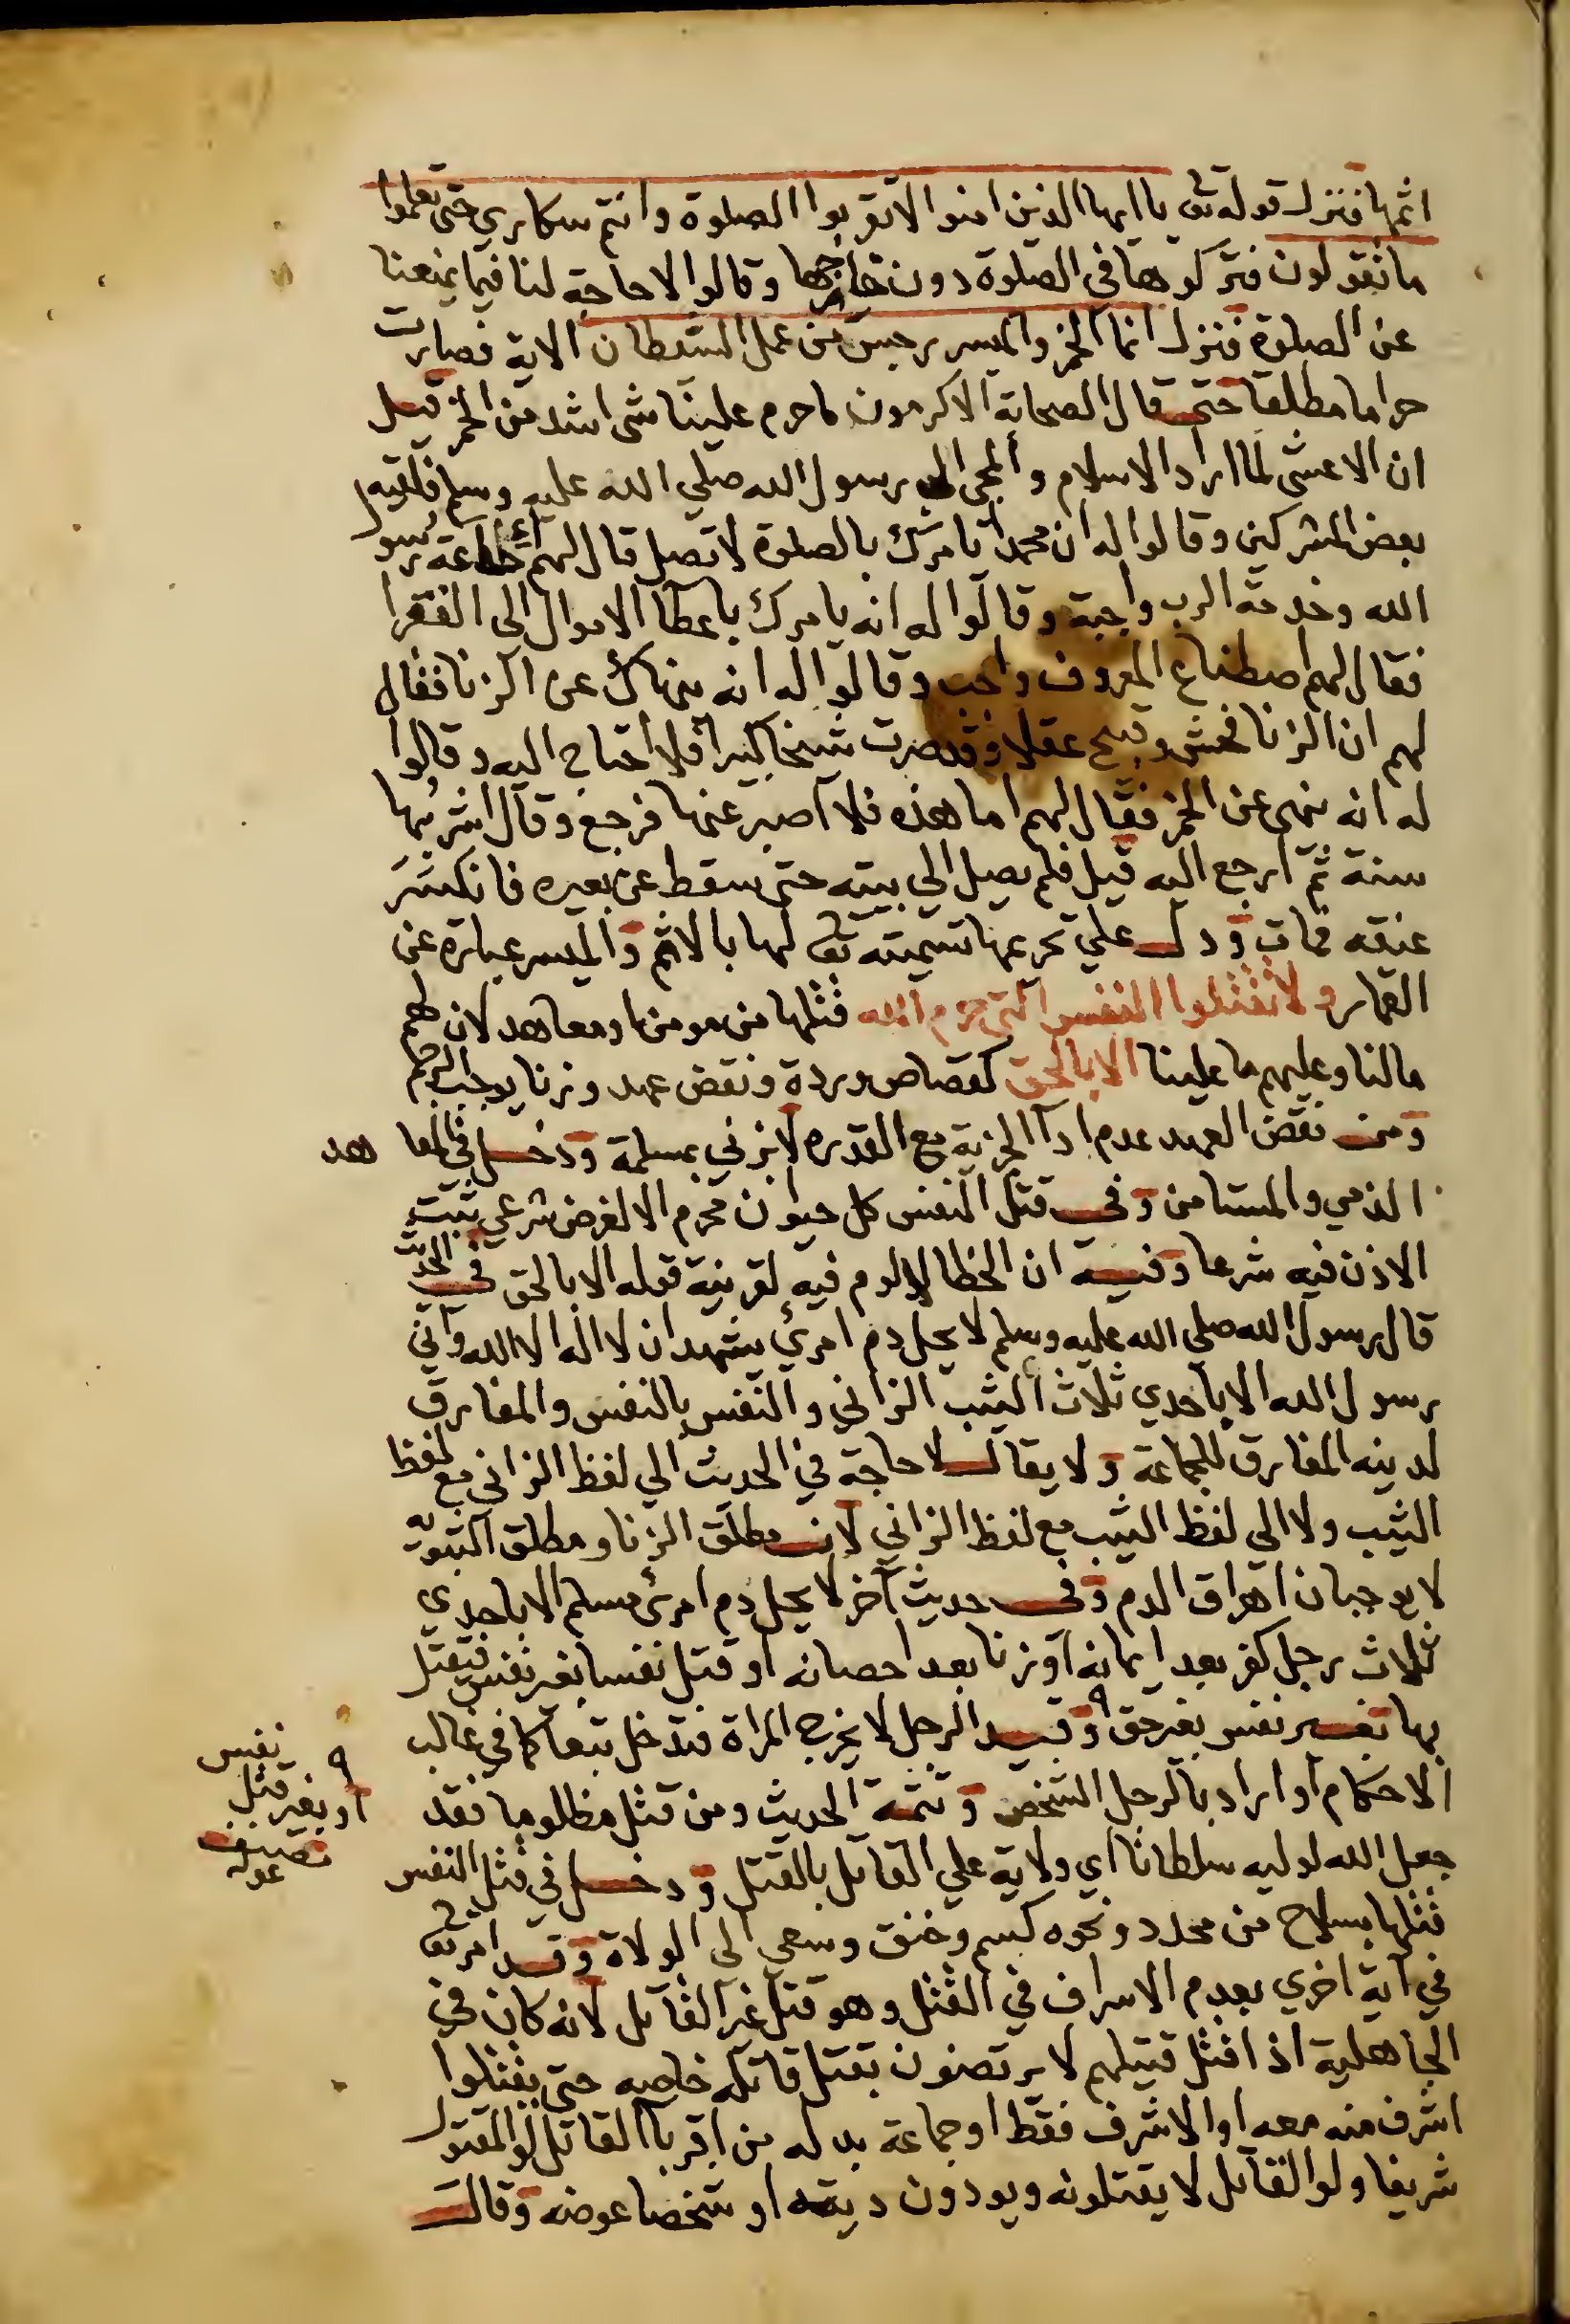 اثمها فنزل قوله تعا يا ايها الذين امنوا لا تقربوا الصلوة وانتم سكارى حتى تعلموا
ما تقولون فتركوها في الصلوة دون خارجها وقالوا لا حاجة لنا فيما يمنعنا
عن الصلوة فنزل انما الخمر والميسر رجس من عمل الشيطان الاية فصارت
حراما مطلقا حتى قال الصحابة الاكرمون ما حرم علينا شى اشد من الخمر قيل
ان الاعشى لما اراد الاسلام والمجى الى رسول الله صلي الله عليه وسلم فلقيه
بعض المشركين وقالوا له ان محمدا يامرك بالصلوة لا تصل قال لهم طاعة رسول
الله وخدمة الرب واجبة وقالوا له انه يامرك باعطآ الاموال الى الفقرا
فقال لهم اصطناع المعروف واجب وقالوا له انه ينهاك عن الزنا فقال
لهم ان الزنا فحش وقبيح عقلا وقد صرت شيخا كبيرا فلا احتاج اليه وقالوا
له انه ينهى عن الخمر فقال لهم اما هذه فلا اصبر عنها فرجع وقال اشربها
سنة ثم ارجع اليه قيل فلم يصل الي بيته حتى سقط عن بعيره فانكسر
عنقه فمات ودل علي تحريمها تسميته تعا لها بالاثم والميسر عبارة عن
القمار ولا تقتلوا النفس التي حرم الله قتلها من مومن او معاهد لان لهم
مالنا وعليهم ما علينا الا بالحق كقصاص وردة ونقض عهد وزنا يوجب الرجم
ومن نقض العهد عدم ادآ الجزية مع القدره لا يزني بمسلمة ودخل في المعا هد
الذمي والمستامن وفي قتل النفس كل حيوان محرم الا لغرض شرعي ثبت
الاذن فيه شرعا وفيه ان الخطا لا لوم فيه لقرينة قوله الا بالحق في الحديث
قال رسول الله صلى الله عليه وسلم لا يحل دم امرئ يشهد ان لا اله الا الله وأني
رسول الله الا باحدي ثلاث الثيب الزاني والنفس بالنفس والمفارق
لدينه المفارق للجماعة ولا يقال لا حاجة في الحديث الي لفظ الزاني مع لفظ
الثيب ولا الي لفظ الثيب مع لفظ الزاني لان مطلق الزنا ومطلق الثيوبة
لا يوجبان اهراق الدم وفي حديث آخر لا يحل دم امرئ مسلم الا باحدي
ثلاث رجل كفر بعد ايمانه او زنا بعد احصانه او قتل نفسا بغير نفس فيقتل
بها تفسير نفس بغير حق وقيد الرجل لا يخرج المراة فتدخل تبعا كما في غالب
الاحكام او اراد بالرجل الشخص وتتمة الحديث ومن قتل مظلوما فقد
جعل الله لوليه سلطانا اي ولاية علي القاتل بالقتل ودخل في قتل النفس
قتلها بسلاح من محدد ونحوه كسم وخنق وسعي الى الولاة وقد امر تعا
في آية اخري بعدم الاسراف في القتل وهو قتل غير القاتل لانه كان في
الجاهلية اذا قتل قتيلهم لا يرتضون بقتل قاتله خاصه حتى يقتلوا
اشرف منه معه او الاشرف فقط او جماعة بدله من اقربآ القاتل لو المقتول
شريفا ولو القاتل لا يقتلونه ويودون ديته او شخصا عوضه وقال
نفس
او بغير قتل